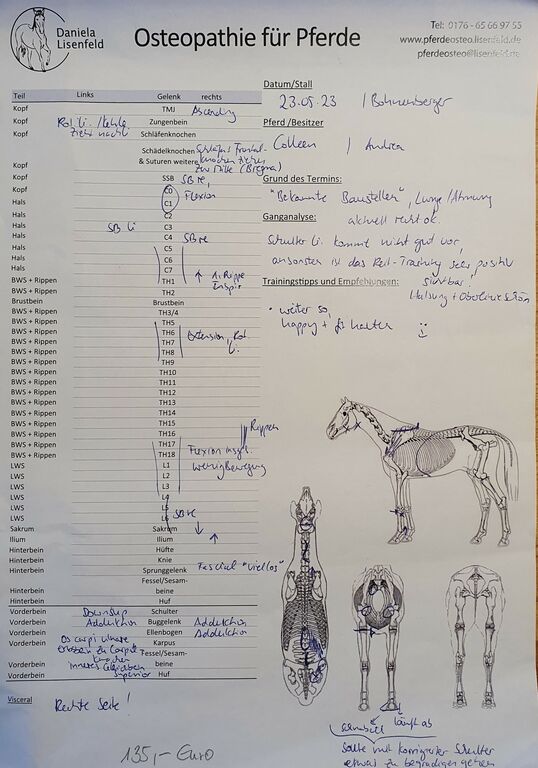 Daniela
Lisenfeld
Osteopathie für Pferde
Tel: 0176 - 65 66 97 55
www.pferdeosteo.lisenfeld.de
pferdeosteo@lisenfeld.de
Datum/Stall
23.05.23 / Bohnenberger
Pferd /Besitzer
Colleen / Andrea
Grund des Termins:
"Bekannte Baustellen", Lunge/Atmung
aktuell recht ok
Ganganalyse:
Schulter li. kommt nicht gut vor,
ansonsten ist das Reit-Training sehr positiv
sichtbar!
Halsung + Oberlinie schön
Trainingstipps und Empfehlungen:
• weiter so,
happy + fit halten
Teil Links Gelenk rechts
Kopf TMJ Ascending
Kopf Rot. li. / Kehle Zungenbein
zieht nach li
Kopf Schläfenknochen
Schädelknochen
Kopf & Suturen weitere
zur Mitte (Bregma)
Kopf SSB SB re,
Kopf C0 Flexion
Hals C1
Hals C2
Hals SB li C3
Hals C4 SB re
Hals C5
Hals C6
Hals C7 ↑ 1. Rippe
BWS + Rippen TH1 Inspir.
BWS + Rippen TH2
Brustbein Brustbein
BWS + Rippen TH3/4
BWS + Rippen TH5
BWS + Rippen TH6 Extension, Rot.
BWS + Rippen TH7
BWS + Rippen TH8
BWS + Rippen TH9
BWS + Rippen TH10
BWS + Rippen TH11
BWS + Rippen TH12
BWS + Rippen TH13
BWS + Rippen TH14
BWS + Rippen TH15
BWS + Rippen TH16 Rippen
BWS + Rippen TH17
BWS + Rippen TH18 Flexion insg.
LWS L1 wenig Bewegung
LWS L2
LWS L3
LWS L4
LWS L5 SB re
LWS L6
Sakrum Sakrum ↓
Ilium Ilium ↑
Hinterbein Hüfte
Hinterbein Knie
Hinterbein Sprunggelenk Fascial "viel los"
Fessel/Sesam-
Hinterbein beine
Hinterbein Huf
Vorderbein Down slip Schulter
Vorderbein Adduktion Buggelenk Adduktion
Vorderbein Ellenbogen Adduktion
Vorderbein Os carpi ulnare Karpus
Fessel/Sesam-
Vorderbein inneres Gleichbein beine
Vorderbein superior Huf
Visceral Rechte Seite!
135,- Euro
läuft ab
Sollte mit korrigierter Schulter
etwas zu begradigen gehen